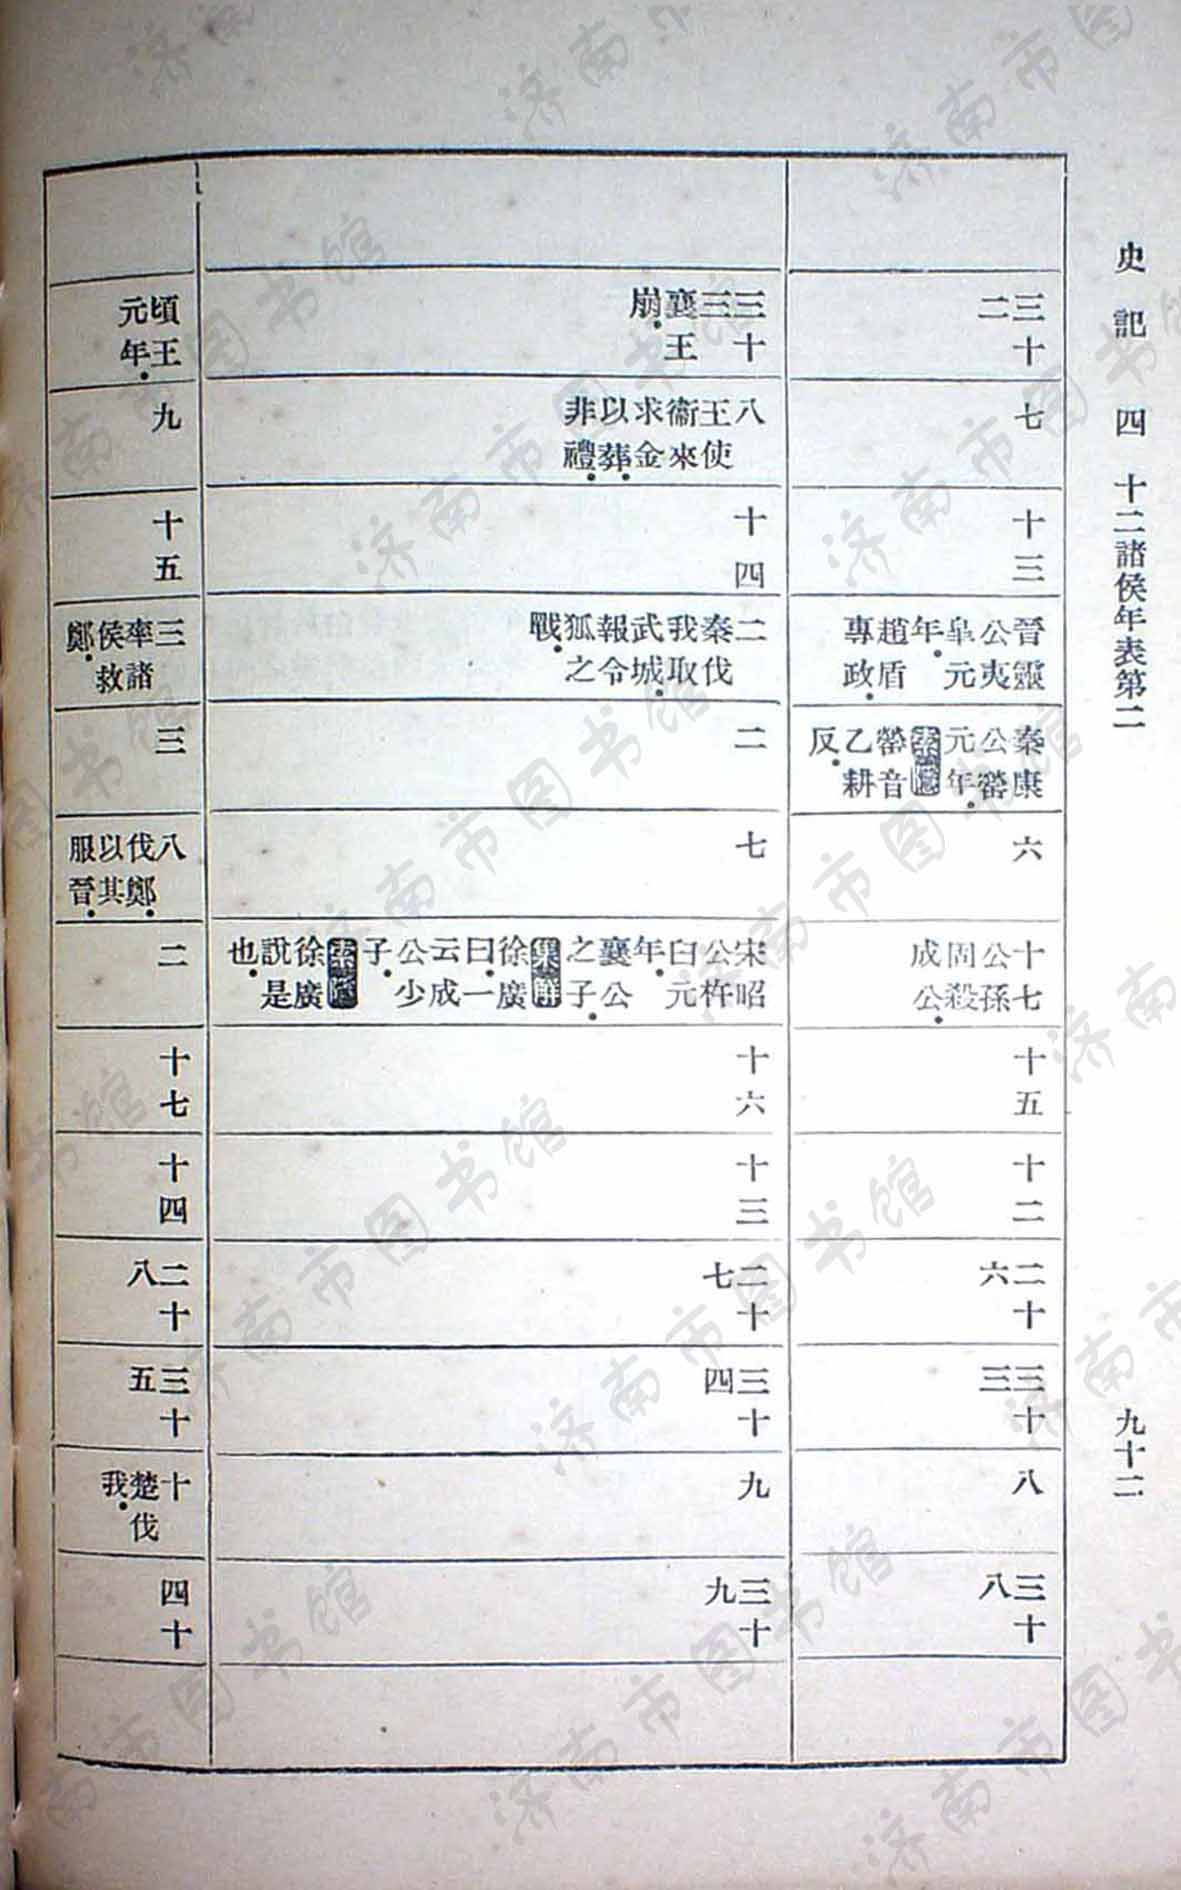 史記四 十二諸侯年表第二 九十二
三十二
七
十三
晉靈公夷皐元年趙盾專政
秦康公罃元年索隱罃音乙耕反
六
十七公孫固殺成公
十五
十二
二十六
三十三
八
三十八
三十三襄王崩
八王使衞來求金以葬非禮
十四
二秦伐我取武城報令狐之戰
二
七
宋昭公杵臼元年襄公之子集解徐廣曰一云成公少子索隱徐廣說是也
十六
十三
二十七
三十四
九
三十九
頃王元年
九
十五
三率諸侯救鄭
三
八伐鄭以其服晉
二
十七
十四
二十八
三十五
十楚伐我
四十
济南市图书馆